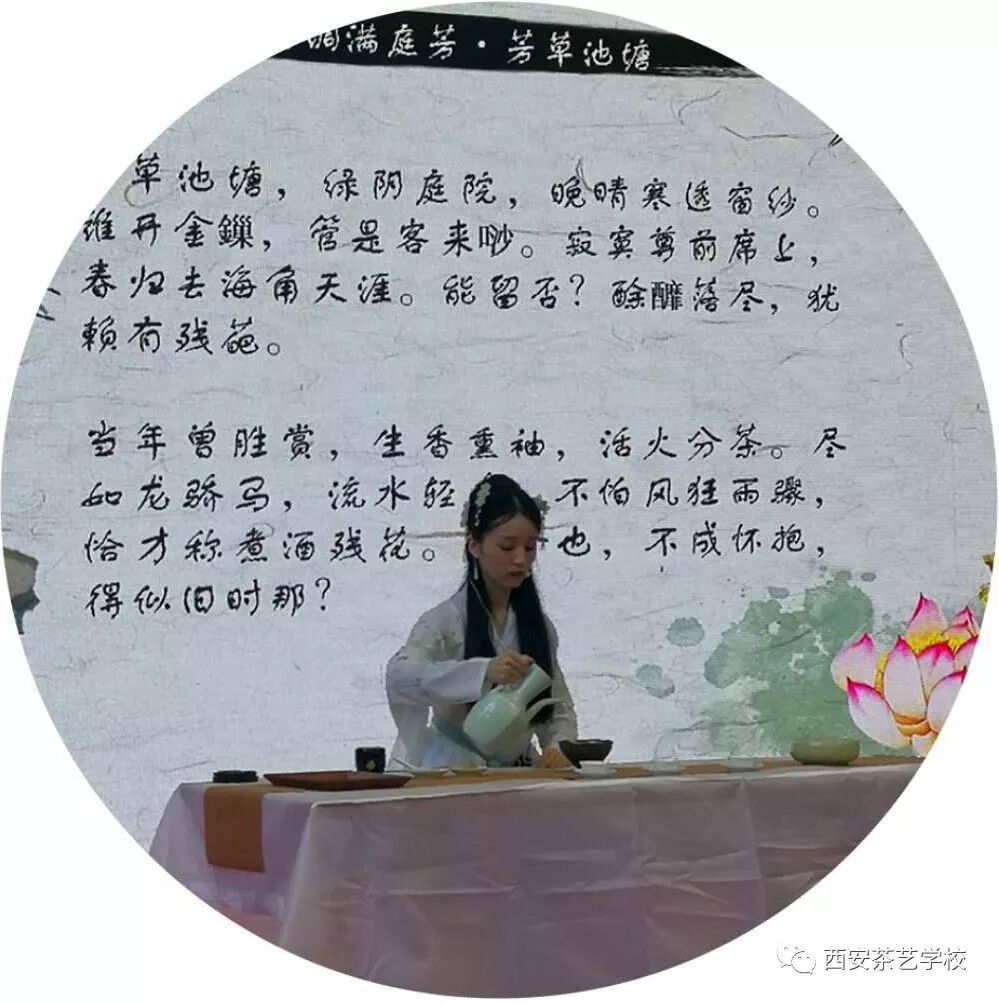 满庭芳·芳草池塘
草池塘，绿阴庭院，晚晴寒透窗纱。
开金鏁，管是客来唦。寂寞尊前席上，
春归去海角天涯。能留否？酴醿落尽，犹
赖有残葩。
当年曾胜赏，生香熏袖，活火分茶。尽
如龙骄马，流水轻 不怕风狂雨骤，
恰才称煮酒残花。 也，不成怀抱，
得似旧时那？
西安茶艺学校